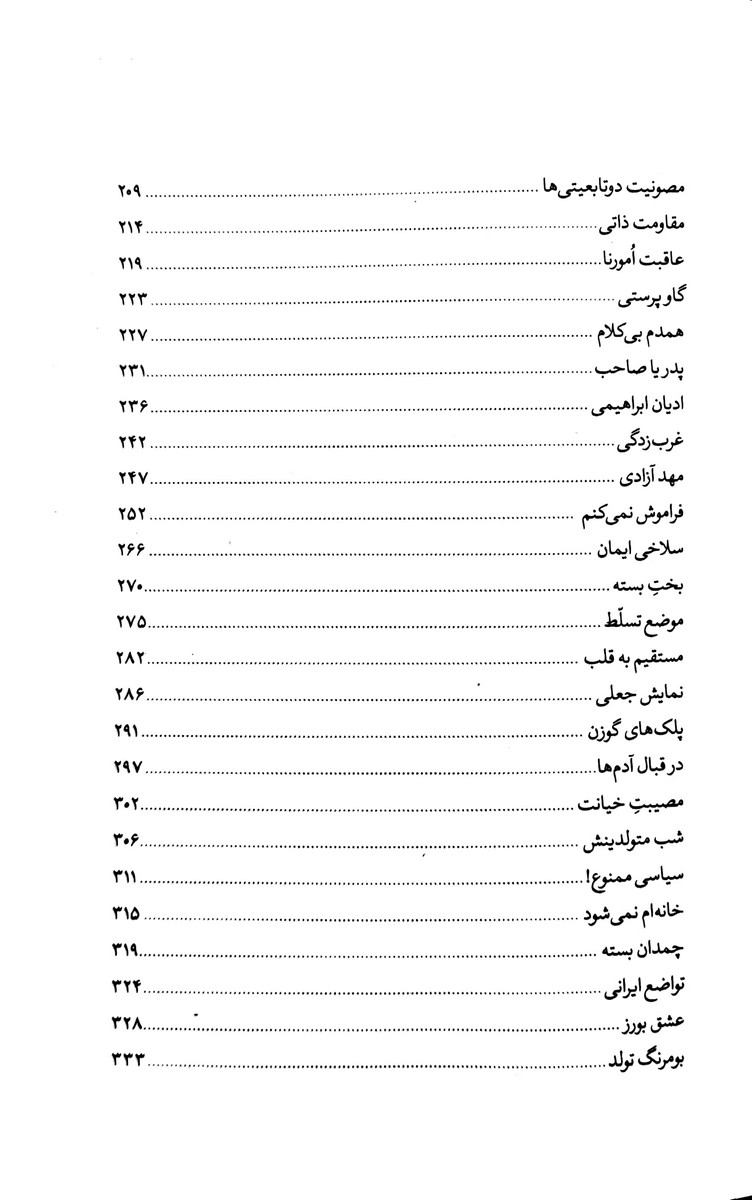 مصونیت دوتابعیتی‌ها ........ ۲۰۹
مقاومت ذاتی ........ ۲۱۴
عاقبت اُمورنا ........ ۲۱۹
گاو پرستی ........ ۲۲۳
همدم بی‌کلام ........ ۲۲۷
پدر یا صاحب ........ ۲۳۱
ادیان ابراهیمی ........ ۲۳۶
غرب‌زدگی ........ ۲۴۲
مهد آزادی ........ ۲۴۷
فراموش نمی‌کنم ........ ۲۵۲
سلاخی ایمان ........ ۲۶۶
بختِ بسته ........ ۲۷۰
موضع تسلّط ........ ۲۷۵
مستقیم به قلب ........ ۲۸۲
نمایش جعلی ........ ۲۸۶
پلک‌های گوزن ........ ۲۹۱
در قبال آدم‌ها ........ ۲۹۷
مصیبتِ خیانت ........ ۳۰۲
شب متولدینش ........ ۳۰۶
سیاسی ممنوع! ........ ۳۱۱
خانه‌ام نمی‌شود ........ ۳۱۵
چمدان بسته ........ ۳۱۹
تواضع ایرانی ........ ۳۲۴
عشق بورز ........ ۳۲۸
بومرنگ تولد ........ ۳۳۳